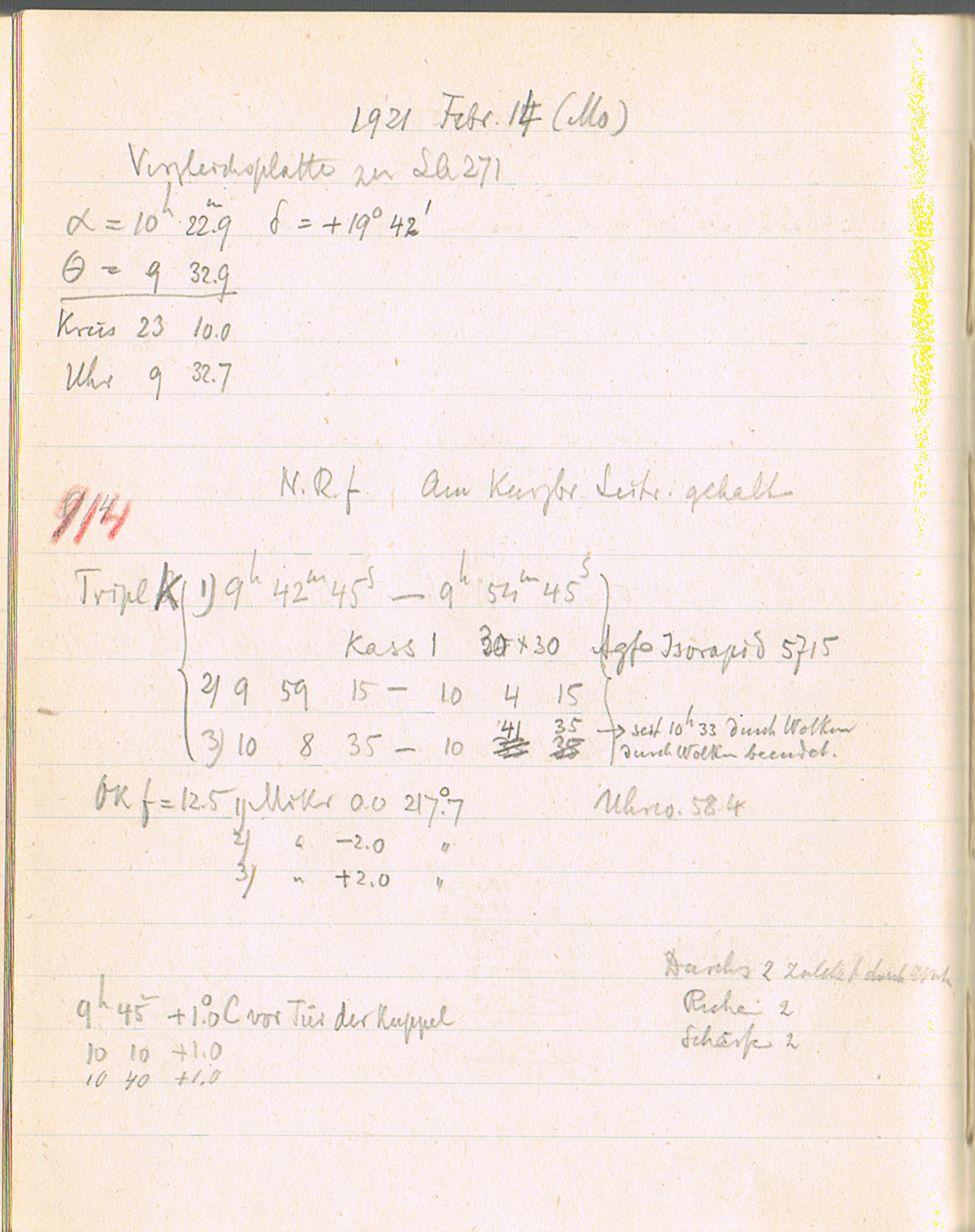 1921 Febr. 14 (Mo)
Vergleichsplatte zu LA 271
α = 10h 22.m9 δ = +19° 42'
Θ = 9 32.9
Kreis 23 10.0
Uhr 9 32.7
N.R.f. Am Kurzbr. Leitr. gehalt
9/4
Tripl K 1) 9h 42m 45s — 9h 54m 45s
Kass 1 30 × 30 Agfa Isorapid 5715
2) 9 59 15 — 10 4 15
3) 10 8 35 — 10 41 35 → seit 10h 33 durch Wolken
durch Wolken beendet.
OK f = 12.5 1) Mikr 0.0 217.°7 Uhrw. 58.4
2) " −2.0 "
3) " +2.0 "
Durchs 2 zuletzt durch
9h 45 +1.°0 C vor Tür der Kuppel
Ruhe 2
10 10 +1.0
Schärfe 2
10 40 +1.0